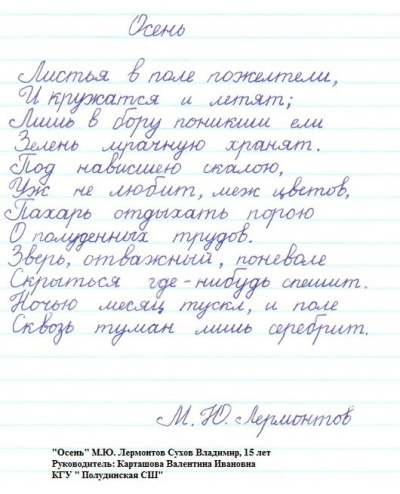 Осень
Листья в поле пожелтели,
И кружатся и летят;
Лишь в бору поникши ели
Зелень мрачную хранят.
Под нависшею скалою,
Уж не любит, меж цветов,
Пахарь отдыхать порою
О полуденных трудов.
Зверь, отважный, поневоле
Скрыться где-нибудь спешит.
Ночью месяц тускл, и поле
Сквозь туман лишь серебрит.
М. Ю. Лермонтов
"Осень" М.Ю. Лермонтов Сухов Владимир, 15 лет
Руководитель: Карташова Валентина Ивановна
КГУ " Полудинская СШ"